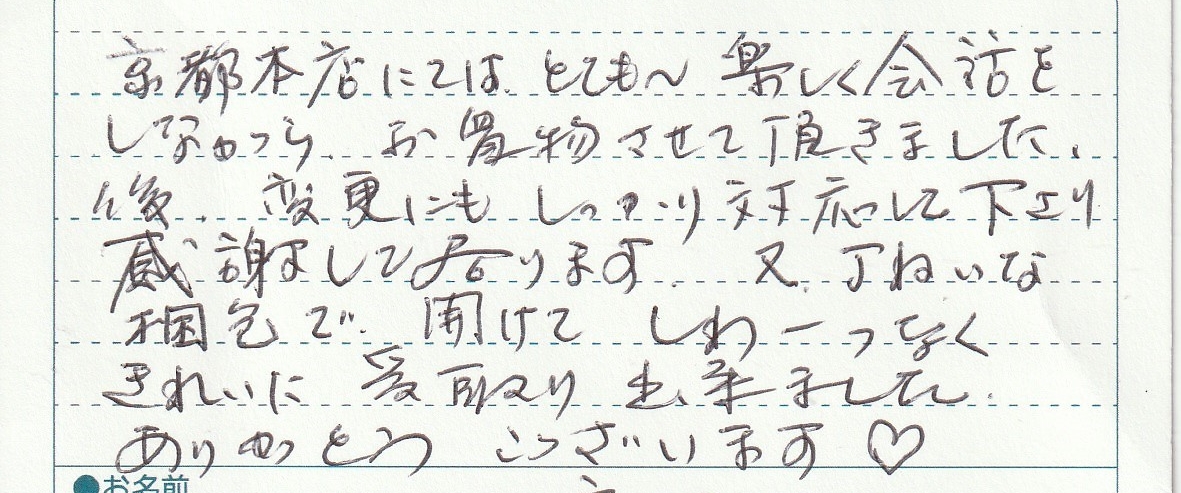 京都本店にては、とても〜楽しく会話を
しながら、お買物させて頂きました、
後、変更にもしっかり対応して下さり
感謝して居ります。又、丁ねいな
梱包で、開けてしわ一つなく
きれいに受取り出来ました。
ありがとうございます♡
●お名前